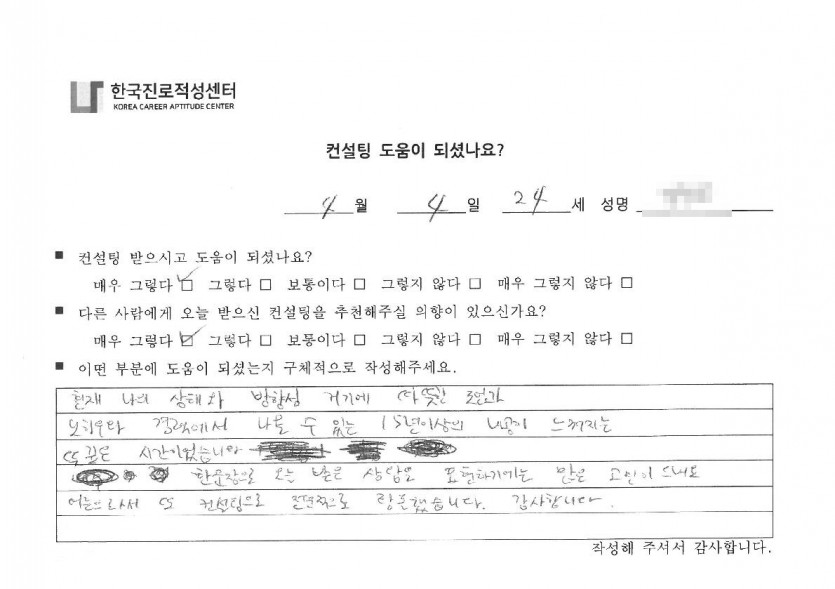 한국진로적성센터
KOREA CAREER APTITUDE CENTER
컨설팅 도움이 되셨나요?
4 월 4 일 24 세 성명
■ 컨설팅 받으시고 도움이 되셨나요?
매우 그렇다 ☑ 그렇다 □ 보통이다 □ 그렇지 않다 □ 매우 그렇지 않다 □
■ 다른 사람에게 오늘 받으신 컨설팅을 추천해주실 의향이 있으신가요?
매우 그렇다 ☑ 그렇다 □ 보통이다 □ 그렇지 않다 □ 매우 그렇지 않다 □
■ 어떤 부분에 도움이 되셨는지 구체적으로 작성해주세요.
현재 나의 상태와 방향성 거기에 따뜻한 조언과
경력에서 나올 수 있는 15년이상의 내공이 느껴지는
뜻깊은 시간이었습니다
한문장으로 오늘 받은 상담을 표현하기에는 많은 고민이 드네요
컨설팅으로 감사합니다.
작성해 주셔서 감사합니다.